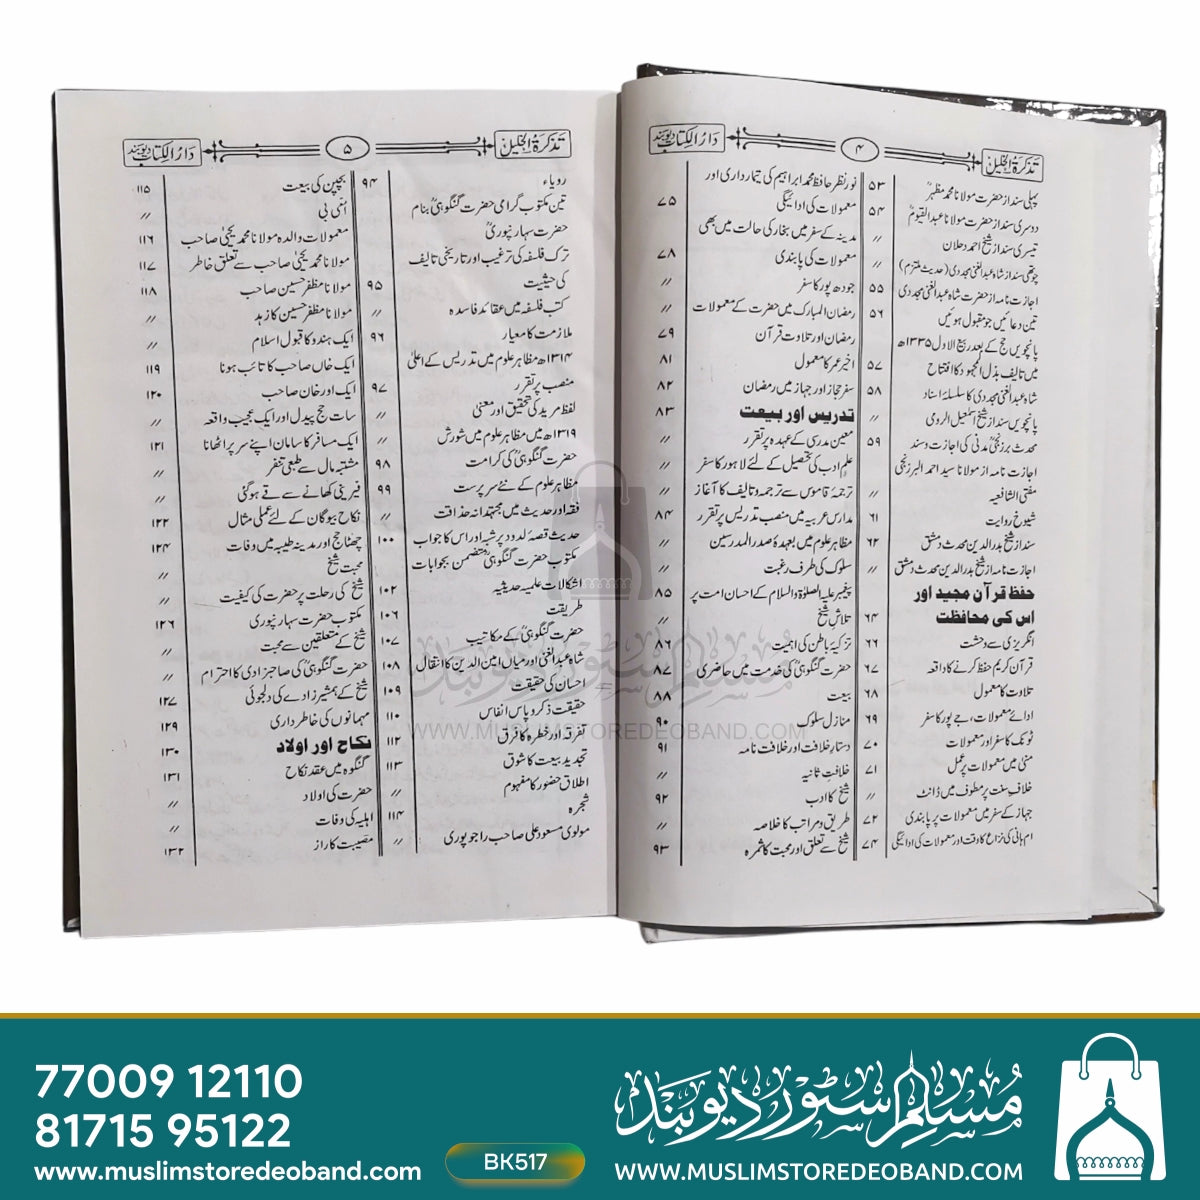 تذکرۃ الخلیل
۴
دار الکتاب دیوبند
پہلی سند از حضرت مولانا محمد مظہرؒ ۵۳
دوسری سند از حضرت مولانا عبدالقیومؒ ۵۴
تیسری سند از شیخ احمد دحلان 〃
چوتھی سند از شاہ عبدالغنی مجددی (حدیث ملتزم) 〃
اجازت نامہ از حضرت شاہ عبدالغنی مجددی ۵۵
تین دعائیں جو مقبول ہوئیں ۵۶
پانچویں حج کے بعد ربیع الاول ۱۳۳۵ھ
میں تالیف بذل المجہود کا افتتاح ۵۷
شاہ عبدالغنی مجددی کا سلسلۂ اسناد ۵۸
پانچویں سند از شیخ اسمٰعیل الرومی 〃
محدث برزنجیؒ مدنی کی اجازت و سند ۵۹
اجازت نامہ از مولانا سید احمد البرزنجی
مفتی الشافعیہ 〃
شیوخ روایت ۶۱
سند از شیخ بدرالدین محدث دمشق ۶۲
اجازت نامہ از شیخ بدرالدین محدث دمشق 〃
حفظ قرآن مجید اور
اس کی محافظت ۶۴
انگریزی سے وحشت ۶۶
قرآن کریم حفظ کرنے کا واقعہ ۶۷
تلاوت کا معمول ۶۸
ادائے معمولات، جے پور کا سفر ۶۹
ٹونک کا سفر اور معمولات ۷۰
منیٰ میں معمولات پر عمل ۷۱
خلاف سنت پر مطوف میں ڈانٹ 〃
جہاز کے سفر میں معمولات پر پابندی ۷۲
ام ہانی کی نزاع کا وقت اور معمولات کی ادائیگی ۷۴
نور نظر حافظ محمد ابراہیم کی تیمارداری اور
معمولات کی ادائیگی ۷۵
مدینہ کے سفر میں بخار کی حالت میں بھی
معمولات کی پابندی ۷۸
جودھ پور کا سفر 〃
رمضان المبارک میں حضرت کے معمولات 〃
رمضان اور تلاوت قرآن ۷۹
اخیر عمر کا معمول ۸۱
سفر حجاز اور جہاز میں رمضان ۸۲
تدریس اور بیعت ۸۳
معین مدرسی کے عہدہ پر تقرر 〃
علم ادب کی تحصیل کے لئے لاہور کا سفر 〃
ترجمۂ قاموس سے ترجمہ و تالیف کا آغاز 〃
مدارس عربیہ میں منصب تدریس پر تقرر ۸۴
مظاہر علوم میں بعہدۂ صدر المدرسین 〃
سلوک کی طرف رغبت 〃
پیغمبر علیہ الصلوٰۃ والسلام کے احسان امت پر ۸۵
تلاش شیخ 〃
تزکیۂ باطن کی اہمیت ۸۶
حضرت گنگوہیؒ کی خدمت میں حاضری ۸۷
بیعت ۸۸
منازل سلوک ۹۰
دستار خلافت اور خلافت نامہ ۹۱
خلافت ثانیہ 〃
شیخ کا ادب ۹۲
طریق و مراتب کا خلاصہ 〃
شیخ سے تعلق اور محبت کا ثمرہ ۹۳
تذکرۃ الخلیل
۵
دار الکتاب دیوبند
رویاء ۹۴
تین مکتوب گرامی حضرت گنگوہیؒ بنام
حضرت سہارنپوریؒ
ترک فلسفہ کی ترغیب اور تاریخی تالیف
کی حیثیت ۹۵
کتب فلسفہ میں عقائد فاسدہ 〃
ملازمت کا معیار ۹۶
۱۳۱۴ھ مظاہر علوم میں تدریس کے اعلیٰ
منصب پر تقرر ۹۷
لفظ مرید کی تحقیق اور معنیٰ 〃
۱۳۱۹ھ میں مظاہر علوم میں شورش 〃
حضرت گنگوہیؒ کی کرامت ۹۸
مظاہر علوم کے نئے سرپرست ۹۹
فقہ اور حدیث میں مجتہدانہ حذاقت 〃
حدیث قصۂ لدود پر شبہ اور اس کا جواب ۱۰۰
مکتوب حضرت گنگوہیؒ متضمن بجوابات
اشکالات علمیہ حدیثیہ ۱۰۲
طریقت ۱۰۶
حضرت گنگوہیؒ کے مکاتیب ۱۰۷
شاہ عبدالغنی اور میاں امین الدین کا انتقال ۱۰۸
احسان کی حقیقت ۱۰۹
حقیقت ذکر و پاس انفاس ۱۱۰
تفرقہ اور خطرہ کا فرق ۱۱۲
تجدید بیعت کا شوق ۱۱۳
اطلاق حضور کا مفہوم 〃
شجرہ ۱۱۴
مولوی مسعود علی صاحب راجوپوری 〃
بچپن کی بیعت ۱۱۵
اُمّی بی 〃
معمولات والدہ مولانا محمد یحییٰ صاحب ۱۱۶
مولانا محمد یحییٰ صاحب سے تعلق خاطر ۱۱۷
مولانا مظفر حسین صاحب ۱۱۸
مولانا مظفر حسین کا زہد 〃
ایک ہندو کا قبول اسلام 〃
ایک خاں صاحب کا تائب ہونا ۱۱۹
ایک اور خان صاحب ۱۲۰
سات حج پیدل اور ایک عجیب واقعہ 〃
ایک مسافر کا سامان اپنے سر پر اٹھانا ۱۲۱
مشتبہ مال سے طبعی تنفر 〃
فیرینی کھانے سے قے ہوگئی 〃
نکاح بیوگان کے لئے عملی مثال ۱۲۲
چھٹا حج اور مدینہ طیبہ میں وفات ۱۲۴
محبت شیخ 〃
شیخ کی رحلت پر حضرت کی کیفیت 〃
مکتوب حضرت سہارنپوری ۱۲۶
شیخ کے متعلقین سے محبت 〃
حضرت گنگوہیؒ کی صاحبزادی کا احترام 〃
شیخ کے ہمشیر زادے کی دلجوئی ۱۲۷
مہمانوں کی خاطرداری ۱۲۹
نکاح اور اولاد ۱۳۰
گنگوہ میں عقد نکاح ۱۳۱
حضرت کی اولاد 〃
اہلیہ کی وفات 〃
مصیبت کا راز ۱۳۲
مسلم سٹور دیوبند
WWW.MUSLIMSTOREDEOBAND.COM
77009 12110
81715 95122
www.muslimstoredeoband.com
BK517
مسلم سٹور دیوبند
WWW.MUSLIMSTOREDEOBAND.COM